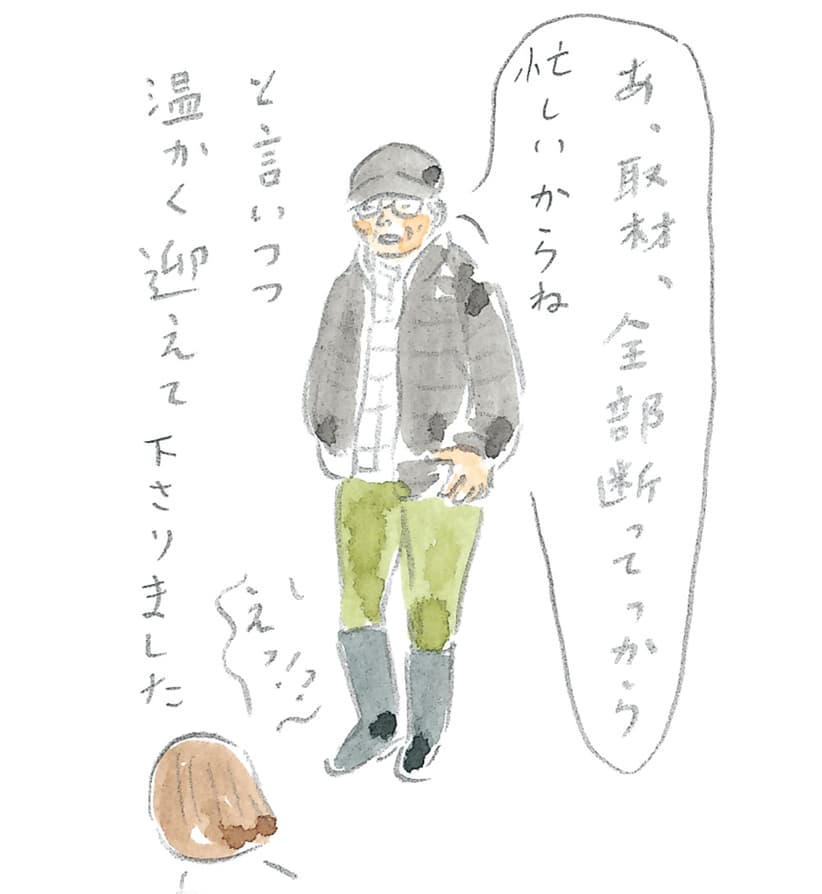 あ、取材、全部断ってっから
忙しいからね
と言いつつ
温かく迎えて下さりました
えっ!?